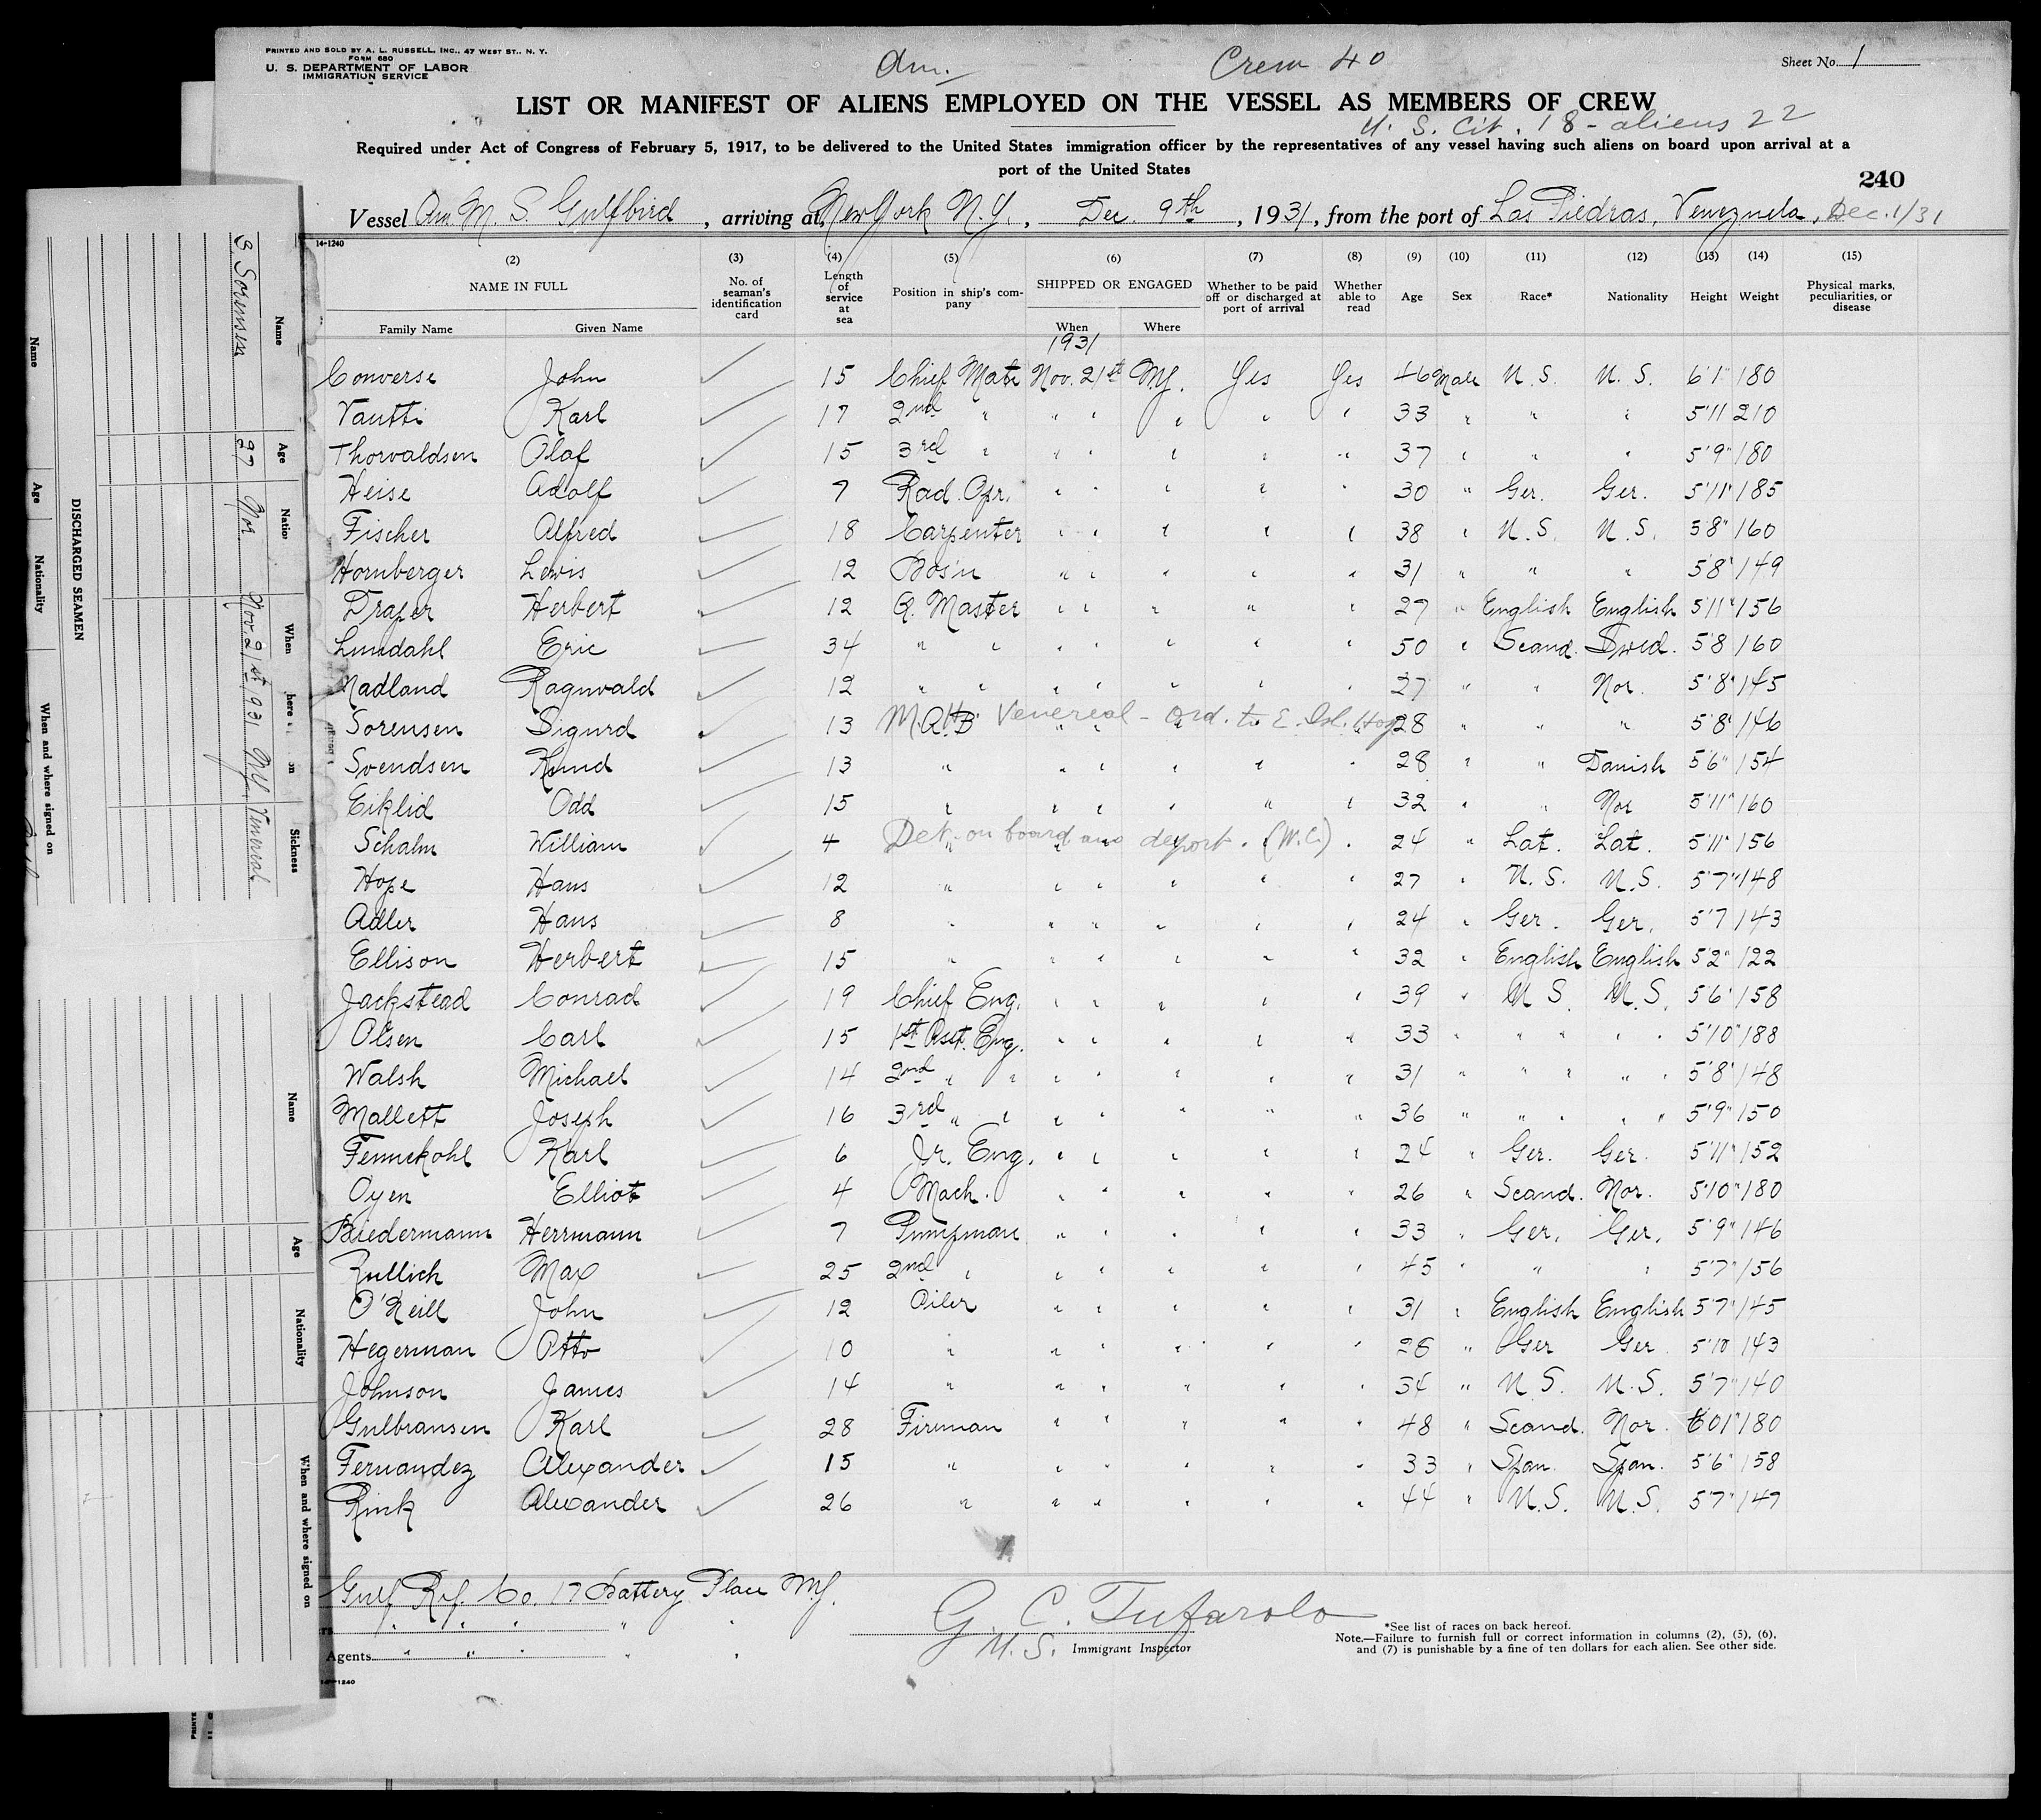 PRINTED AND SOLD BY A. L. RUSSELL, INC., 47 WEST ST., N. Y.
FORM 680
U. S. DEPARTMENT OF LABOR
IMMIGRATION SERVICE
Am. Crew 40 Sheet No. 1
LIST OR MANIFEST OF ALIENS EMPLOYED ON THE VESSEL AS MEMBERS OF CREW
U. S. Cit. 18 - aliens 22
Required under Act of Congress of February 5, 1917, to be delivered to the United States immigration officer by the representatives of any vessel having such aliens on board upon arrival at a
port of the United States
240
Vessel Am M. S. Gulfbird, arriving at New York N.Y., Dec. 9th, 1931, from the port of Las Piedras, Venezuela, Dec. 1/31
14-1240
(2) (3) (4) (5) (6) (7) (8) (9) (10) (11) (12) (13) (14) (15)
NAME IN FULL No. of seaman's identification card Length of service at sea Position in ship's company SHIPPED OR ENGAGED Whether to be paid off or discharged at port of arrival Whether able to read Age Sex Race* Nationality Height Weight Physical marks, peculiarities, or disease
Family Name Given Name When Where
1931
Converse John 15 Chief Mate Nov. 21st N.Y. Yes Yes 46 Male U.S. U.S. 6'1" 180
Vautti Karl 17 2nd " " " " " " 33 " " " 5'11 210
Thorvaldsen Olaf 15 3rd " " " " " " 37 " " " 5'9" 180
Heise Adolf 7 Rad. Opr. " " " " " 30 " Ger. Ger. 5'11" 185
Fischer Alfred 18 Carpenter " " " " " 38 " U.S. U.S. 5'8" 160
Hornberger Lewis 12 Bos'n " " " " " 31 " " " 5'8" 149
Draper Herbert 12 Q. Master " " " " " 27 " English English 5'11" 156
Lundahl Eric 34 " " " " " " " 50 " Scand. Swed. 5'8 160
Nadland Ragnvald 12 " " " " " " " 27 " " Nor. 5'8" 145
Sorensen Sigurd 13 A.B. Venereal - Ord. to E. Isl. Hosp 28 " " " 5'8" 146
Svendsen Knud 13 " " " " " " 28 " " Danish 5'6" 154
Eiklid Odd 15 " " " " " " 32 " " Nor 5'11" 160
Schalm William 4 Det. on board and deport. (W.C.) 24 " Lat. Lat. 5'11" 156
Hope Hans 12 " " " " " " 27 " U.S. U.S. 5'7" 148
Adler Hans 8 " " " " " " 24 " Ger. Ger. 5'7 143
Ellison Herbert 15 " " " " " " 32 " English English 5'2" 122
Jackstead Conrad 19 Chief Eng. " " " " " 39 " U.S. U.S. 5'6" 158
Olsen Carl 15 1st Asst. Eng. " " " " " 33 " " " 5'10" 188
Walsh Michael 14 2nd " " " " " " " 31 " " " 5'8" 148
Mallett Joseph 16 3rd " " " " " " " 36 " " " 5'9" 150
Fennekohl Karl 6 Jr. Eng. " " " " " 24 " Ger. Ger. 5'11" 152
Oyen Elliot 4 Mach. " " " " " 26 " Scand. Nor. 5'10" 180
Biedermann Herrmann 7 Pumpman " " " " " 33 " Ger. Ger. 5'9" 146
Rullich Max 25 2nd " " " " " " 45 " " " 5'7" 156
O'Neill John 12 Oiler " " " " " 31 " English English 5'7" 145
Hegerman Otto 10 " " " " " " 28 " Ger Ger 5'10 143
Johnson James 14 " " " " " " 34 " U.S. U.S. 5'7" 140
Gulbransen Karl 28 Fireman " " " " " 48 " Scand. Nor. 6'01" 180
Fernandez Alexander 15 " " " " " " 33 " Span. Span. 5'6" 158
Rink Alexander 26 " " " " " " 44 " U.S. U.S. 5'7" 147
Gulf Ref. Co. 17 Battery Place N.Y.
G. C. Tufarolo
U.S. Immigrant Inspector
Agents " " " " "
*See list of races on back hereof.
Note.—Failure to furnish full or correct information in columns (2), (5), (6),
and (7) is punishable by a fine of ten dollars for each alien. See other side.
DISCHARGED SEAMEN
Name Age Nationality When and where signed on
Name Age When Sickness
S. Sorensen 27 Nor Nov. 21st 1931 N.Y. Venereal
Name Age Nationality When and where signed on